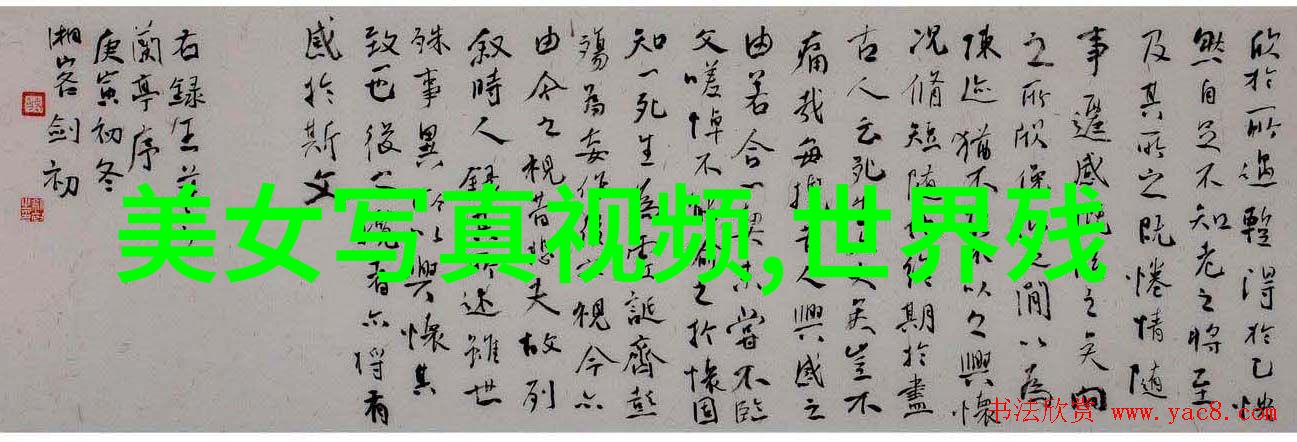 欣於所遇暫得於己快
然自足不知老之將至
及其所之既惓情隨
事遷感慨係之矣向
之所欣俛仰之間以為
陳迹猶不不以之興懷
況脩短隨終期於盡
古人云死生大矣豈不
痛哉每攬昔人興感之
由若合一契未嘗不臨
文嗟悼不能喻之於懷固
知一死生為虛誕齊彭
殤為妄作後之視今亦
由今之視昔悲夫故列
叙時人錄其所述雖世
殊事異所以興懷其
致一也後之攬者亦將有
感於斯文
右錄王羲之
蘭亭序
庚寅初冬
湘客劍初
美女写真视频,世界残
书法欣赏 www.yac8.com